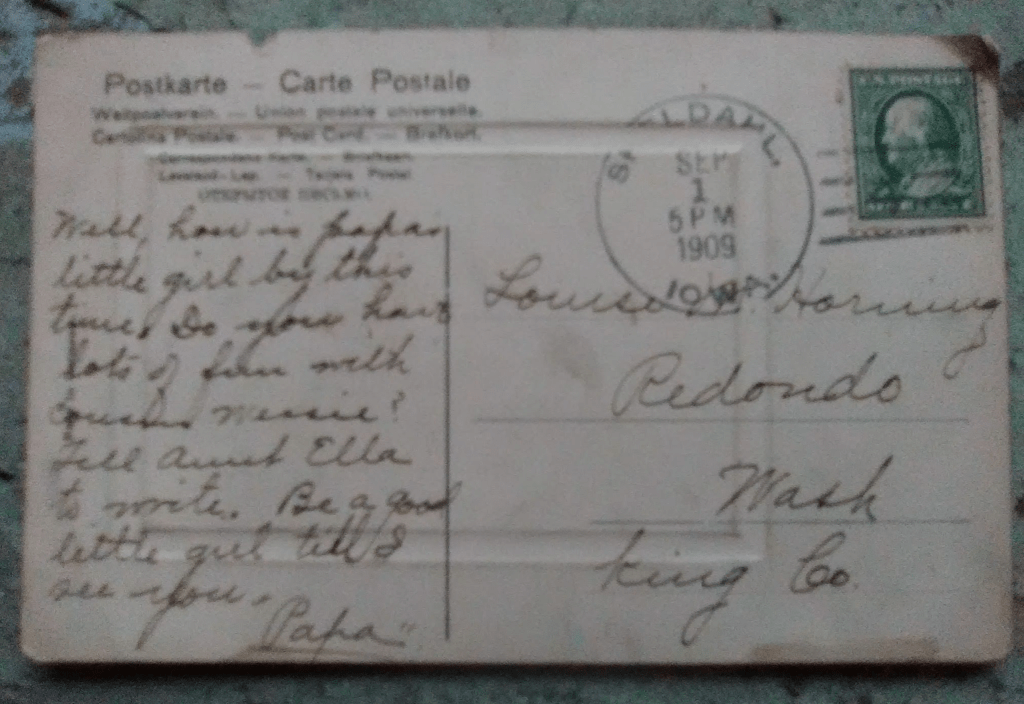 Postkarte — Carte Postale
Weltpostverein. — Union postale universelle.
Cartolina Postale. — Post Card. — Brefkort.
Correspondenz Karte. —
Levelező-Lap. — Tarjeta Postal
SEP
1
5 PM
1909
IOWA
U.S. POSTAGE
Well, how is papas
little girl by this
time. Do you have
lots of fun with
Cousin ?
Tell Aunt Ella
to write. Be a good
little girl till I
see you.
"Papa"
Louise Horning
Redondo
Wash
King Co.